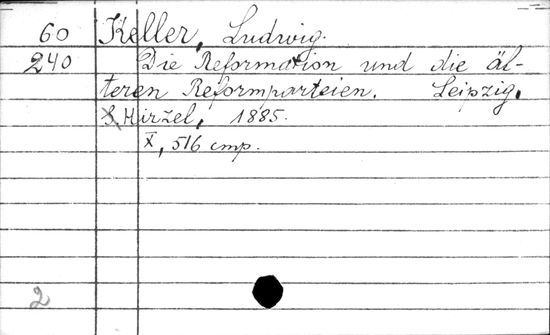 60 Keller, Ludwig.
240 Die Reformation und die äl-
teren Reformparteien. Leipzig,
S. Hiržel, 1885.
X, 516 стр.
2